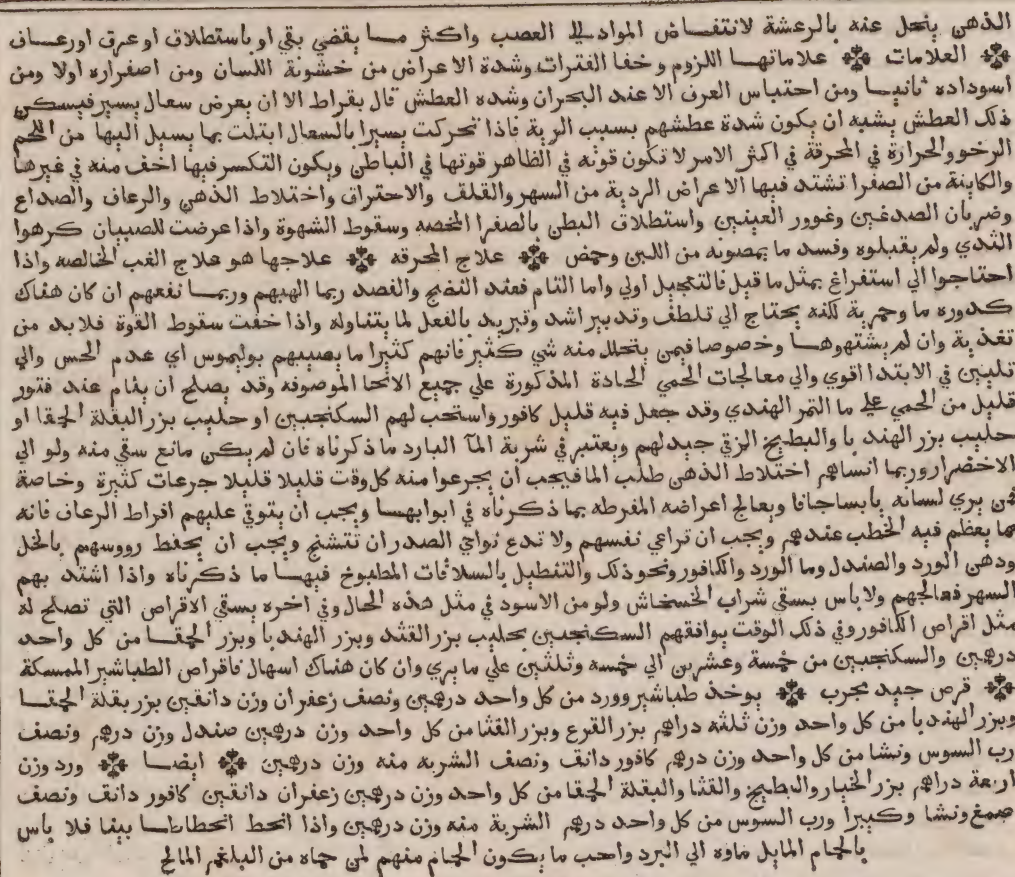 الذهن ينحل عنه بالرعشة لانتفاض المواد الي العصب واكثر ما يقضي بقي او باستطلاق او عرق او رعاف
العلامات علاماتها اللزوم وخفا الفترات وشدة الاعراض من خشونة اللسان ومن اصفراره اولا ومن
اسوداده ثانيا ومن احتباس العرف الا عند البحران وشده العطش قال بقراط الا ان يعرض سعال يسير فيسكن
ذلك العطش يشبه ان يكون شدة عطشهم بسبب الرية فاذا تحركت يسيرا بالسعال ابتلت بما يسيل اليها من اللحم
الرخو والحرارة في المحرقة في اكثر الامر لا تكون قوته في الظاهر قوتها في الباطن ويكون التكسر فيها اخف منه في غيرها
والكاينة من الصفرا تشتد فيها الاعراض الردية من السهر والقلف والاحتراق واختلاط الذهن والرعاف والصداع
وضربان الصدغين وغوور العينين واستطلاق البطن بالصفرا المحصه وسقوط الشهوة واذا عرضت للصبيان كرهوا
الثدي ولم يقبلوه وفسد ما يمصونه من اللبن وحمض علاج المحرقه علاجها هو علاج الغب الخالصه واذا
احتاجوا الي استفراغ بمثل ما قيل فالتعجيل اولي واما التام فعند النضج والفصد ربما الهبهم وربما نفعهم ان كان هناك
كدوره ما وحمرية لكنه يحتاج الي تلطف وتدبير اشد وتبريد بالفعل لما يتناوله واذا خفت سقوط القوة فلا بد من
تغذية وان لم يشتهوها وخصوصا فيمن يتحلل منه شي كثير فانهم كثيرا ما يصيبهم بوليموس اي عدم الحس والي
تليين في الابتدا اقوي والي معالجات الحمي الحادة المذكورة علي جميع الانحا الموصوفه وقد يصلح ان ينام عند فتور
قليل من الحمي علي ما التمر الهندي وقد جعل فيه قليل كافور واستحب لهم السكنجبين او حليب بزر البقلة الحمقا او
حليب بزر الهندبا والبطيخ الرقي جيد لهم ويعتبر في شربة المآ البارد ما ذكرناه فان لم يكن مانع سقي منه ولو الي
الاخضرار وربما انساهم اختلاط الذهن طلب الما فيجب ان يجرعوا منه كل وقت قليلا قليلا جرعات كثيرة وخاصة
من يري لسانه يابسا جافا ويعالج اعراضه المفرطه بما ذكرناه في ابوابها ويجب ان يتوقي عليهم افراط الرعاف فانه
مما يعظم فيه الخطب عندهم ويجب ان تراعي نفسهم ولا تدع نواحي الصدر ان تتشنج ويجب ان يحفظ رووسهم بالخل
ودهن الورد والصندل وما الورد والكافور ونحو ذلك والتنطيل بالسلاقات المطبوخ فيها ما ذكرناه واذا اشتد بهم
السهر فعالجهم ولا باس بسقي شراب الخشخاش ولو من الاسود في مثل هذه الحال وفي اخره يسقي الاقراص التي تصلح له
مثل اقراص الكافور وفي ذلك الوقت يوافقهم السكنجبين بحليب بزر القثد وبزر الهندبا وبزر الحمقا من كل واحد
درهمين والسكنجبين من خمسة وعشرين الي خمسه وثلثين علي ما يري وان كان هناك اسهال فاقراص الطباشير الممسكة
قرص جيد مجرب يوخذ طباشير وورد من كل واحد درهمين ونصف زعفران وزن دانقين بزر بقلة الحمقا
وبزر الهندبا من كل واحد وزن ثلثه دراهم بزر القرع وبزر القثا من كل واحد وزن درهمين صندل وزن درهم ونصف
رب السوس ونشا من كل واحد وزن درهم كافور دانق ونصف الشربه منه وزن درهمين ايضا ورد وزن
اربعة دراهم بزر الخيار والبطيخ والقثا والبقلة الحمقا من كل واحد وزن درهمين زعفران دانقين كافور دانق ونصف
صمغ ونشا وكثيرا ورب السوس من كل واحد درهم الشربة منه وزن درهمين واذا انحط انحطاطا بينا فلا باس
بالحمام المايل ماوه الي البرد واحب ما يكون الحمام منهم لمن حماه من البلغم المالح